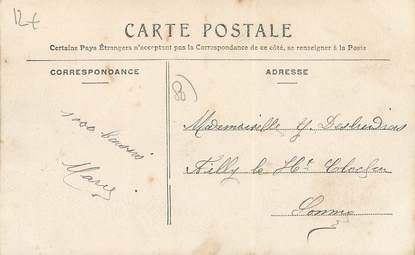 12€
CARTE POSTALE
Certains Pays Étrangers n'acceptent pas la Correspondance de ce côté, se renseigner à la Poste
CORRESPONDANCE
1000 baisers
Marie
ADRESSE
(80)
Mademoiselle Y.
Ailly le Ht Clocher
Somme